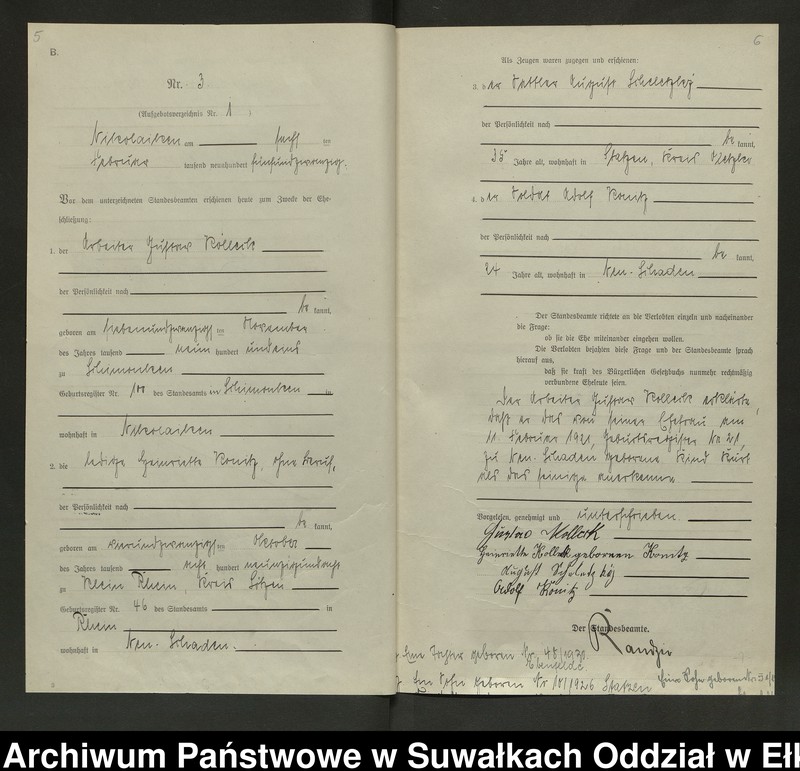 5
B.
Nr. 3
(Aufgebotsverzeichnis Nr. 1)
Nikolaiken am sechs ten
Februar tausend neunhundert fünfundzwanzig.
Vor dem unterzeichneten Standesbeamten erschienen heute zum Zwecke der Ehe-
schließung:
1. der Arbeiter Gustav Kolleck
der Persönlichkeit nach
be kannt,
geboren am siebenundzwanzigsten November
des Jahres tausend neun hundert undeins
zu Schimonken
Geburtsregister Nr. 100 des Standesamts in Schimonken in
wohnhaft in Nikolaiken
2. die ledige Henriette Konitz, ohne Beruf,
der Persönlichkeit nach
be kannt,
geboren am vierundzwanzigsten Oktober
des Jahres tausend acht hundert neunzigundacht
zu Klein Rhein, Kreis Lötzen
Geburtsregister Nr. 46 des Standesamts in
Rhein
wohnhaft in Neu-Schaden.
6
Als Zeugen waren zugezogen und erschienen:
3. der Sattler August
der Persönlichkeit nach
be kannt,
35 Jahre alt, wohnhaft in Statzen, Kreis Oletzko
4. der Soldat Adolf Konitz
der Persönlichkeit nach
be kannt,
24 Jahre alt, wohnhaft in Neu-Schaden
Der Standesbeamte richtete an die Verlobten einzeln und nacheinander
die Frage:
ob sie die Ehe miteinander eingehen wollen.
Die Verlobten bejahten diese Frage und der Standesbeamte sprach
hierauf aus,
daß sie kraft des Bürgerlichen Gesetzbuchs nunmehr rechtmäßig
verbundene Eheleute seien.
Der Arbeiter Gustav Kolleck erklärte,
daß er das von seiner Ehefrau am
11. Februar 1921, Geburtsregister Nr 21,
zu Neu-Schaden geborene Kind Kurt
als das seinige anerkenne.
Vorgelesen, genehmigt und unterschrieben.
Gustav Kolleck
Henriette Kolleck geborenen Konitz
August
Adolf Konitz
Der Standesbeamte.
Eine Tochter geboren Nr. 48/1930
Ein Sohn geboren Nr 18/1926 Statzen
Eine Tochter geboren Nr.
Archiwum Państwowe w Suwałkach Oddział w Ełk